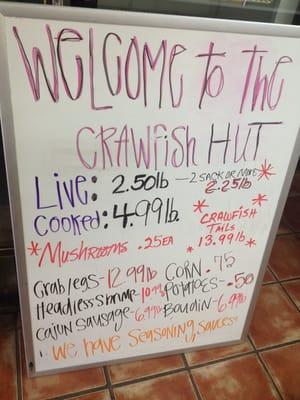 WELCOME TO THE
CRAWFISH HUT
LIVE: 2.50lb — 2 SACK OR MORE
2.25lb
COOKED: 4.99lb.
* CRAWFISH *
TAILS
* 13.99lb *
* MUSHROOMS .25EA
Crab legs - 12.99lb CORN .75
Headless Shrimp 10.99lb POTATOES - .50
Cajun Sausage - 6.99lb Boudin - 6.99lb
! We have Seasoning, Sauces!